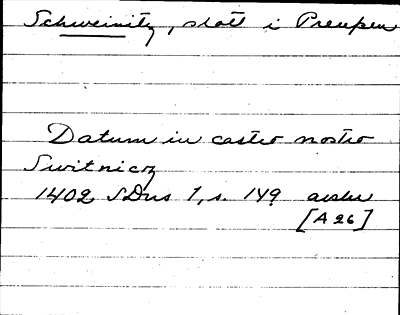 Schweinitz, slott i Preussen
Datum in castro nostro
Switnicz
1402 SDns 1, s. 149
[A 26]